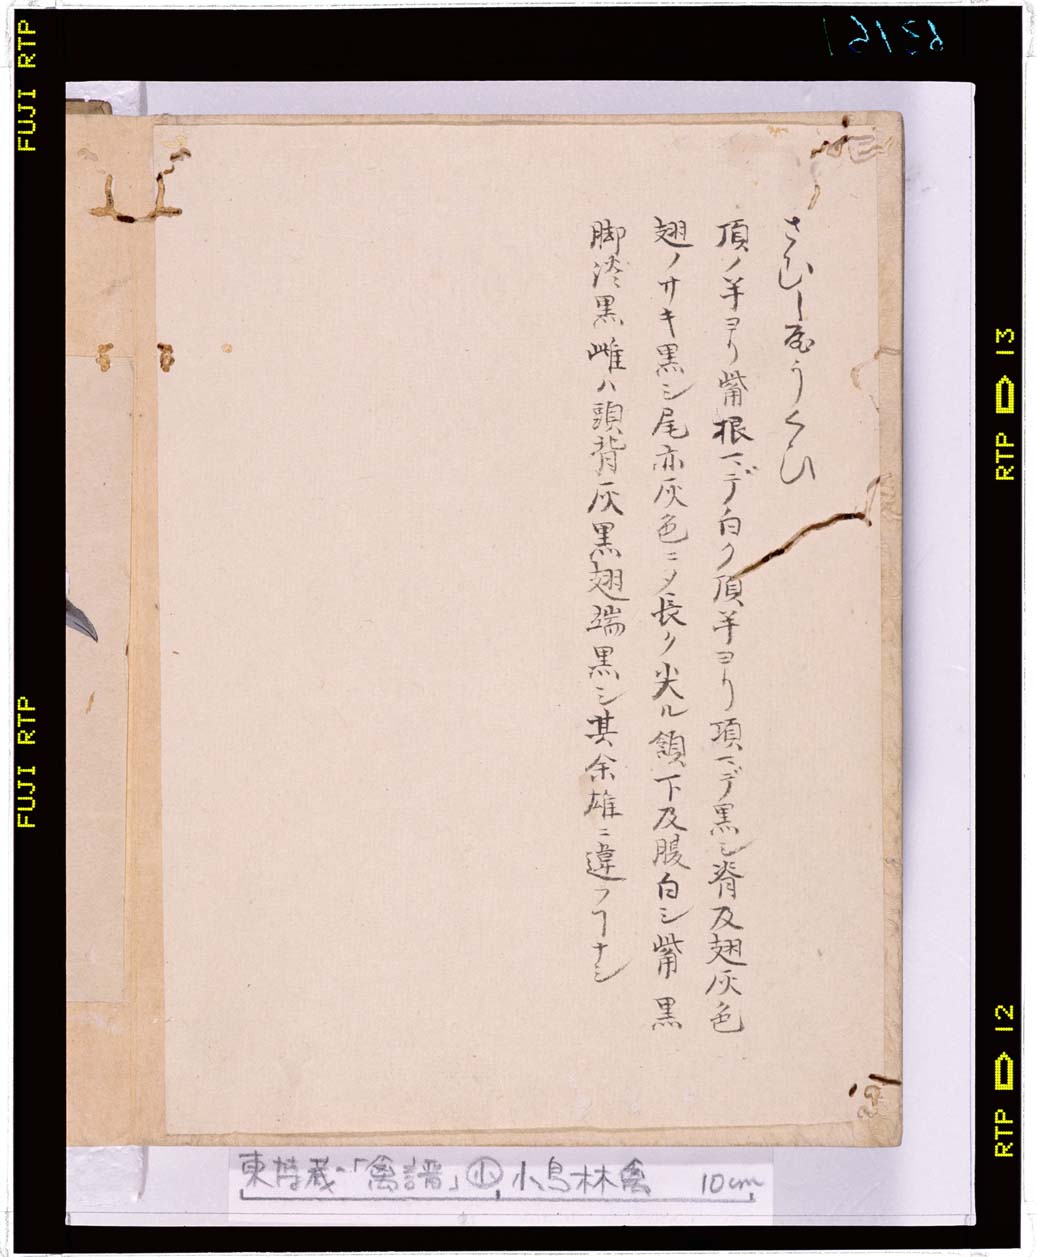 さむしやうくひ
頂ノ半ヨリ觜根マデ白ク頂半ヨリ項マデ黒シ脊及翅灰色
翅ノサキ黒シ尾亦灰色ニメ長ク尖ル頷下及腹白シ觜黒
脚淡黒雌ハ頭背灰黒翅端黒シ其余雄ニ違フヿナシ
東博蔵・「禽譜」㊥ 小鳥林禽 10cm
FUJI RTP
FUJI RTP
RTP 13
RTP 12